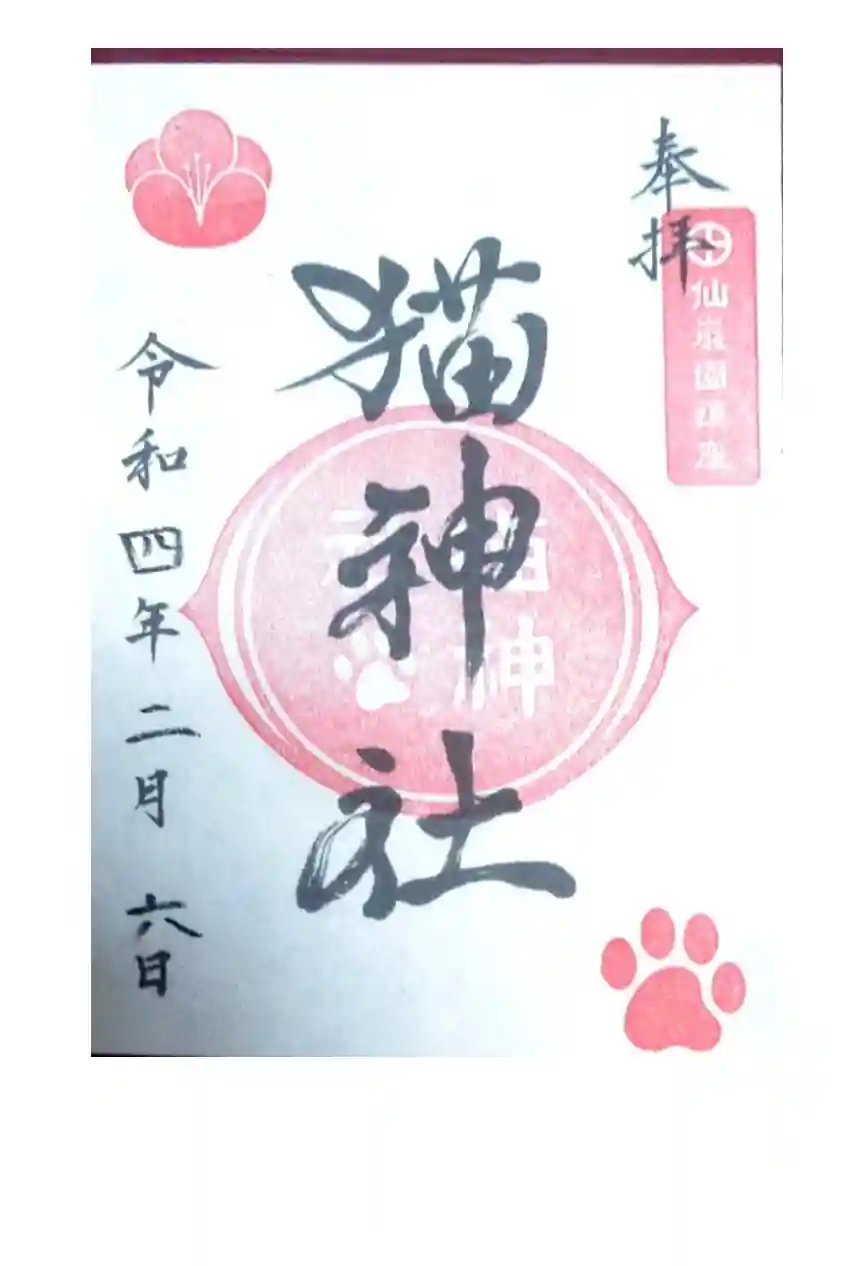 奉拝
仙巌園鎮座
猫神社
猫神
令和四年二月六日